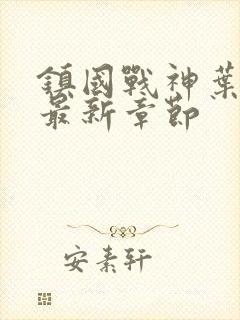 鎮國戰神葉
最新章節
安素轩